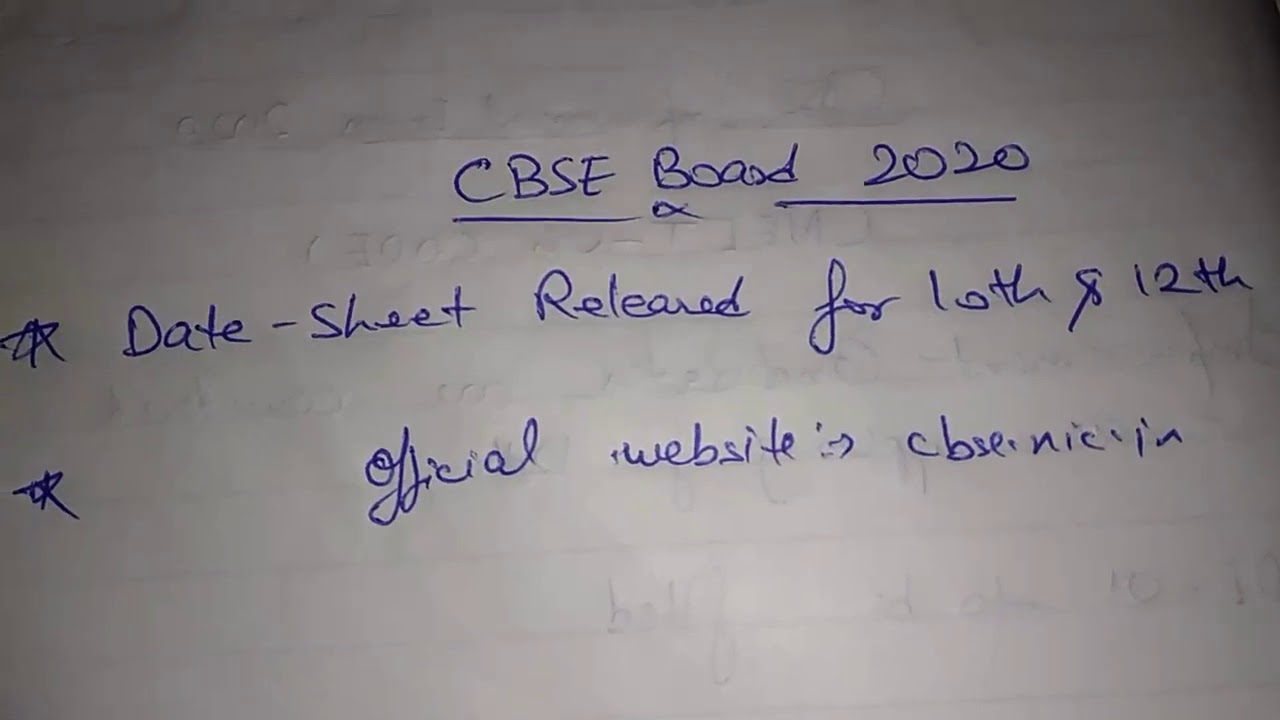 CBSE Board 2020
Date-Sheet Released for 10th & 12th
Official website :→ cbse.nic.in